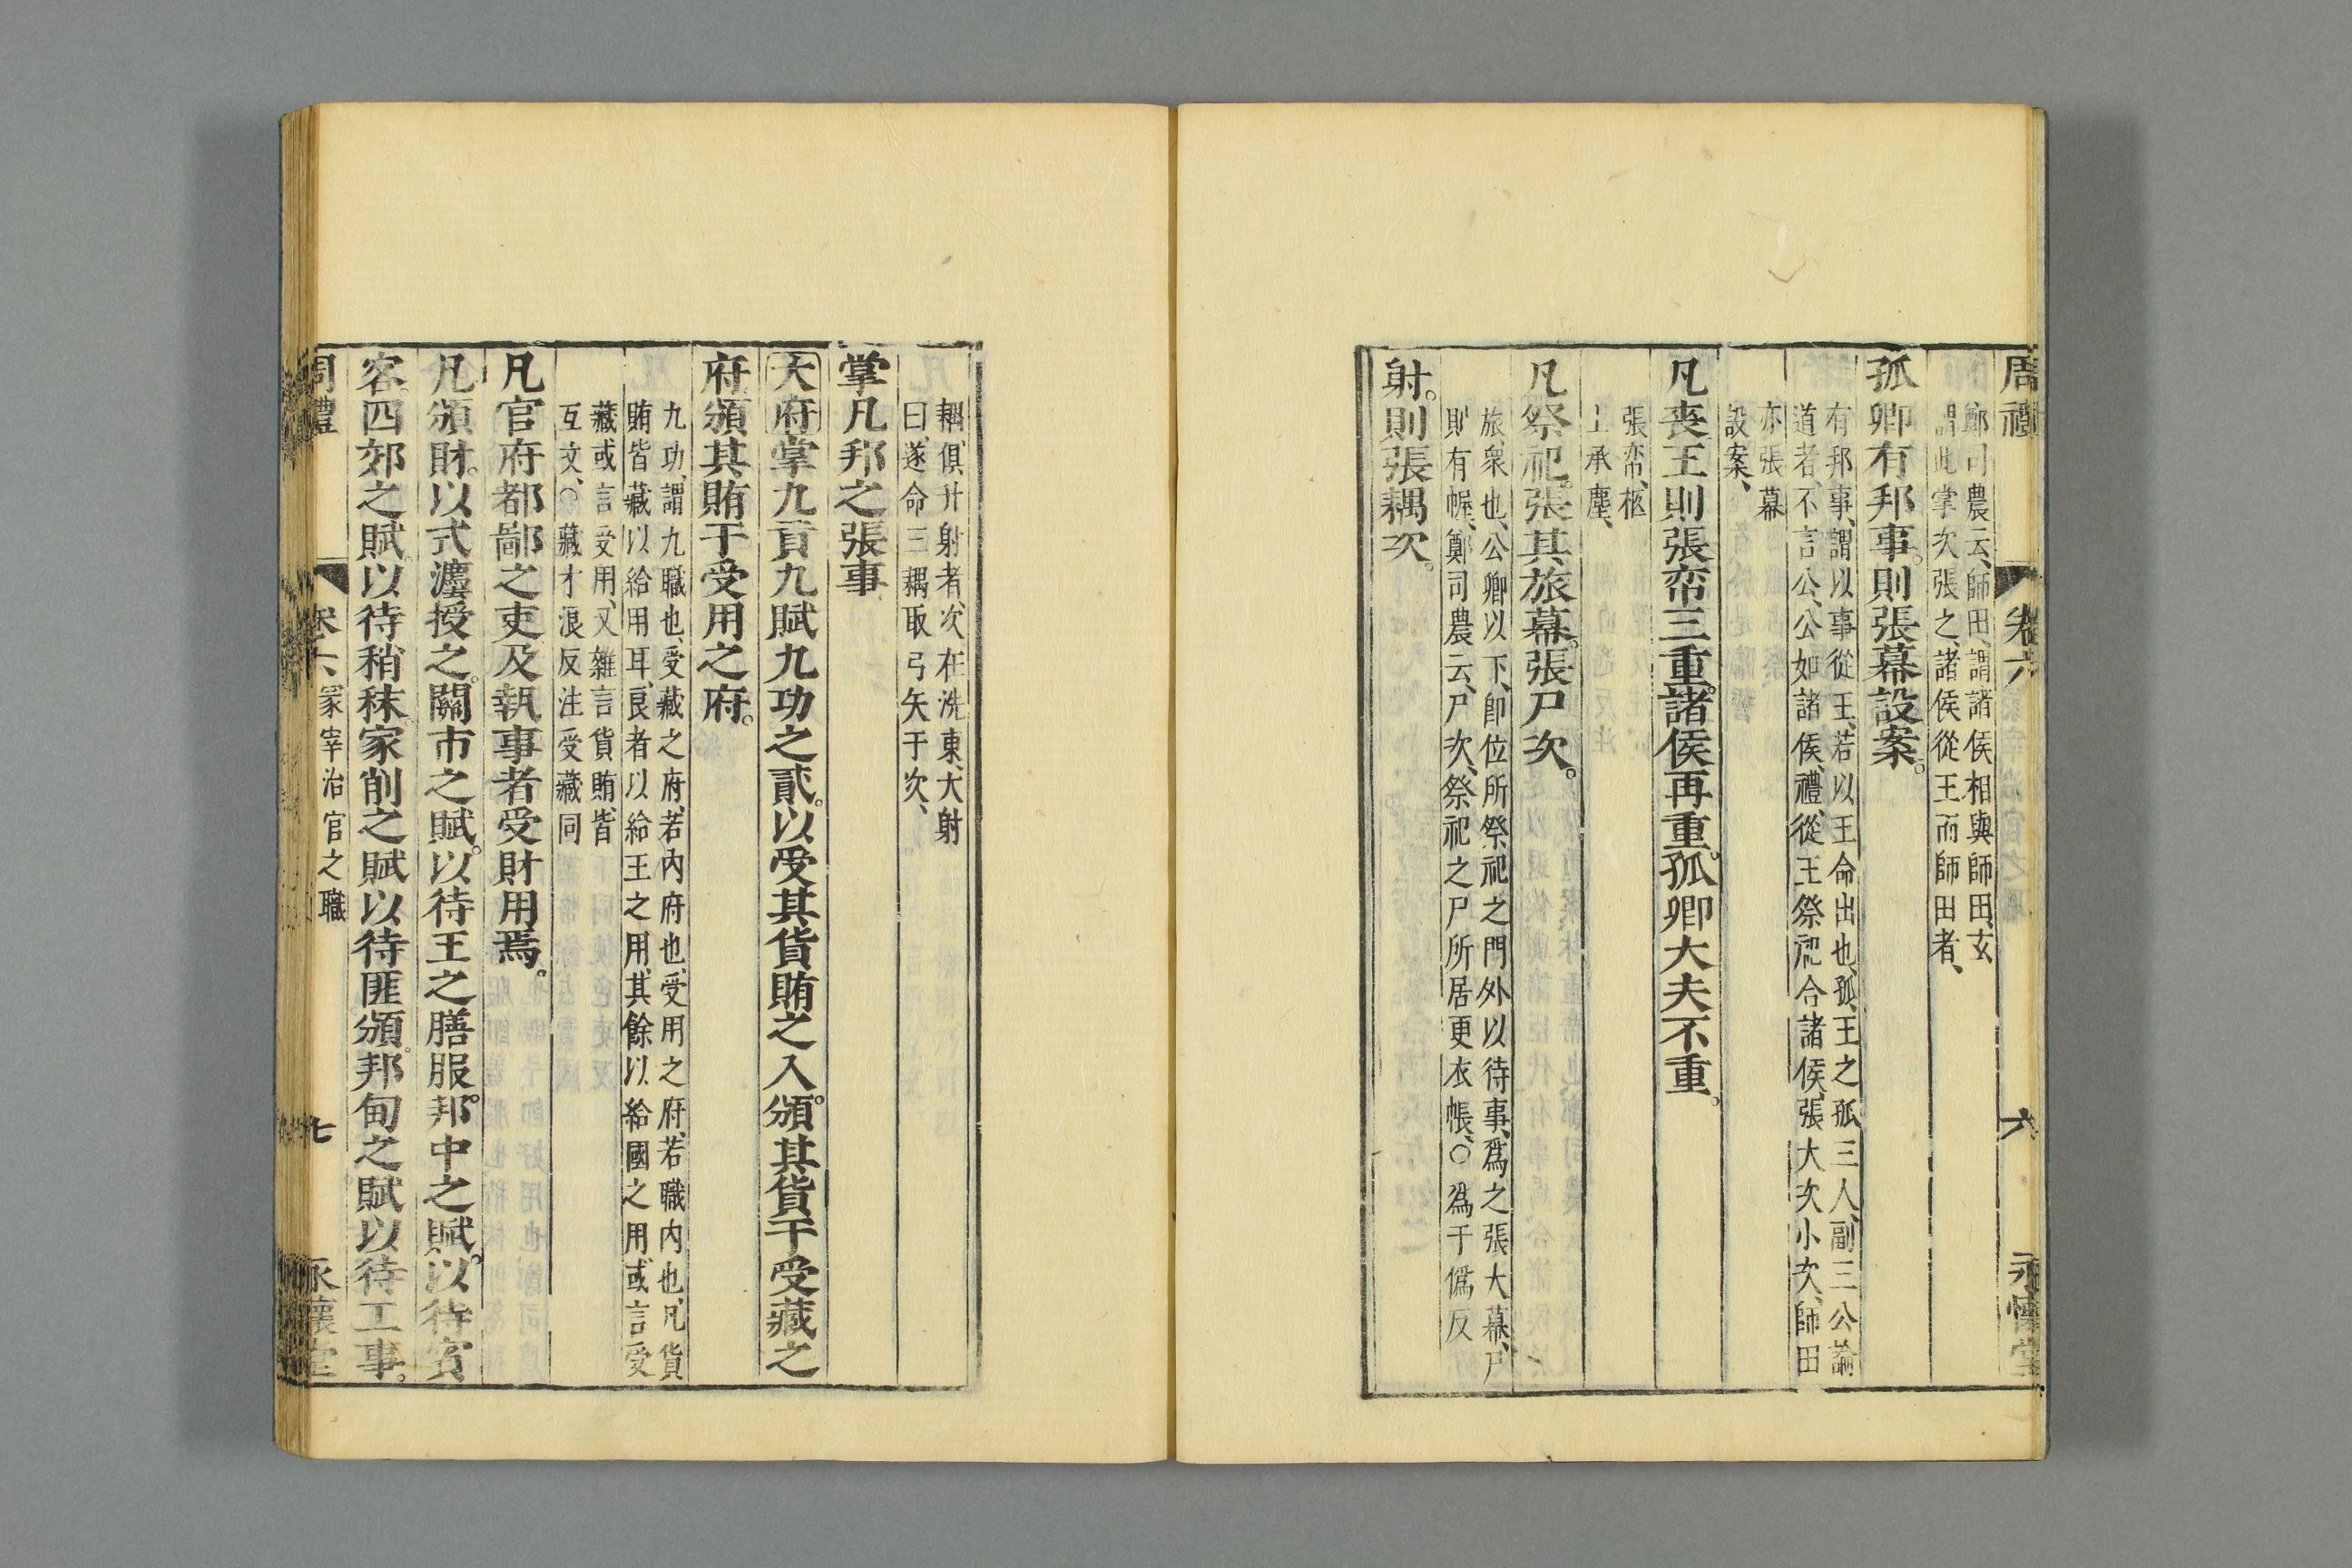 周禮 卷六 六 永懷堂
鄭司農云、師田、謂諸侯相與師田、玄
謂此掌次張之、諸侯從王而師田者、
孤卿有邦事。則張幕設案。
有邦事、謂以事從王、若以王命出也、孤、王之孤三人、副三公論
道者、不言公、公如諸侯、禮、從王祭祀、合諸侯、張大次小次、師田
亦張幕
設案、
凡喪王則張帟三重。諸侯再重。孤卿大夫不重。
張帟、柩
上承塵、
凡祭祀。張其旅幕。張尸次。
旅、衆也、公卿以下、卽位所祭祀之門外以待事、爲之張大幕、尸
則有幄、鄭司農云、尸次、祭祀之尸所居更衣帳、○爲于僞反
射。則張耦次。
耦、俱升射者、次在洗東、大射
曰、遂命三耦取弓矢于次、
掌凡邦之張事
大府掌九貢九賦九功之貳。以受其貨賄之入。頒其貨于受藏之
府。頒其賄于受用之府。
九功、謂九職也、受藏之府、若內府也、受用之府、若職內也、凡貨
賄皆藏以給用耳、良者以給王之用、其餘以給國之用、或言受
藏或言受用、又雜言貨賄、皆
互文、○藏才浪反注受藏同
凡官府都鄙之吏及執事者受財用焉。
凡頒財。以式灋授之。關市之賦。以待王之膳服。邦中之賦。以待賓
客。四郊之賦。以待稍秣。家削之賦。以待匪頒。邦甸之賦。以待工事。
周禮 卷六 冡宰治官之職 七 永懷堂